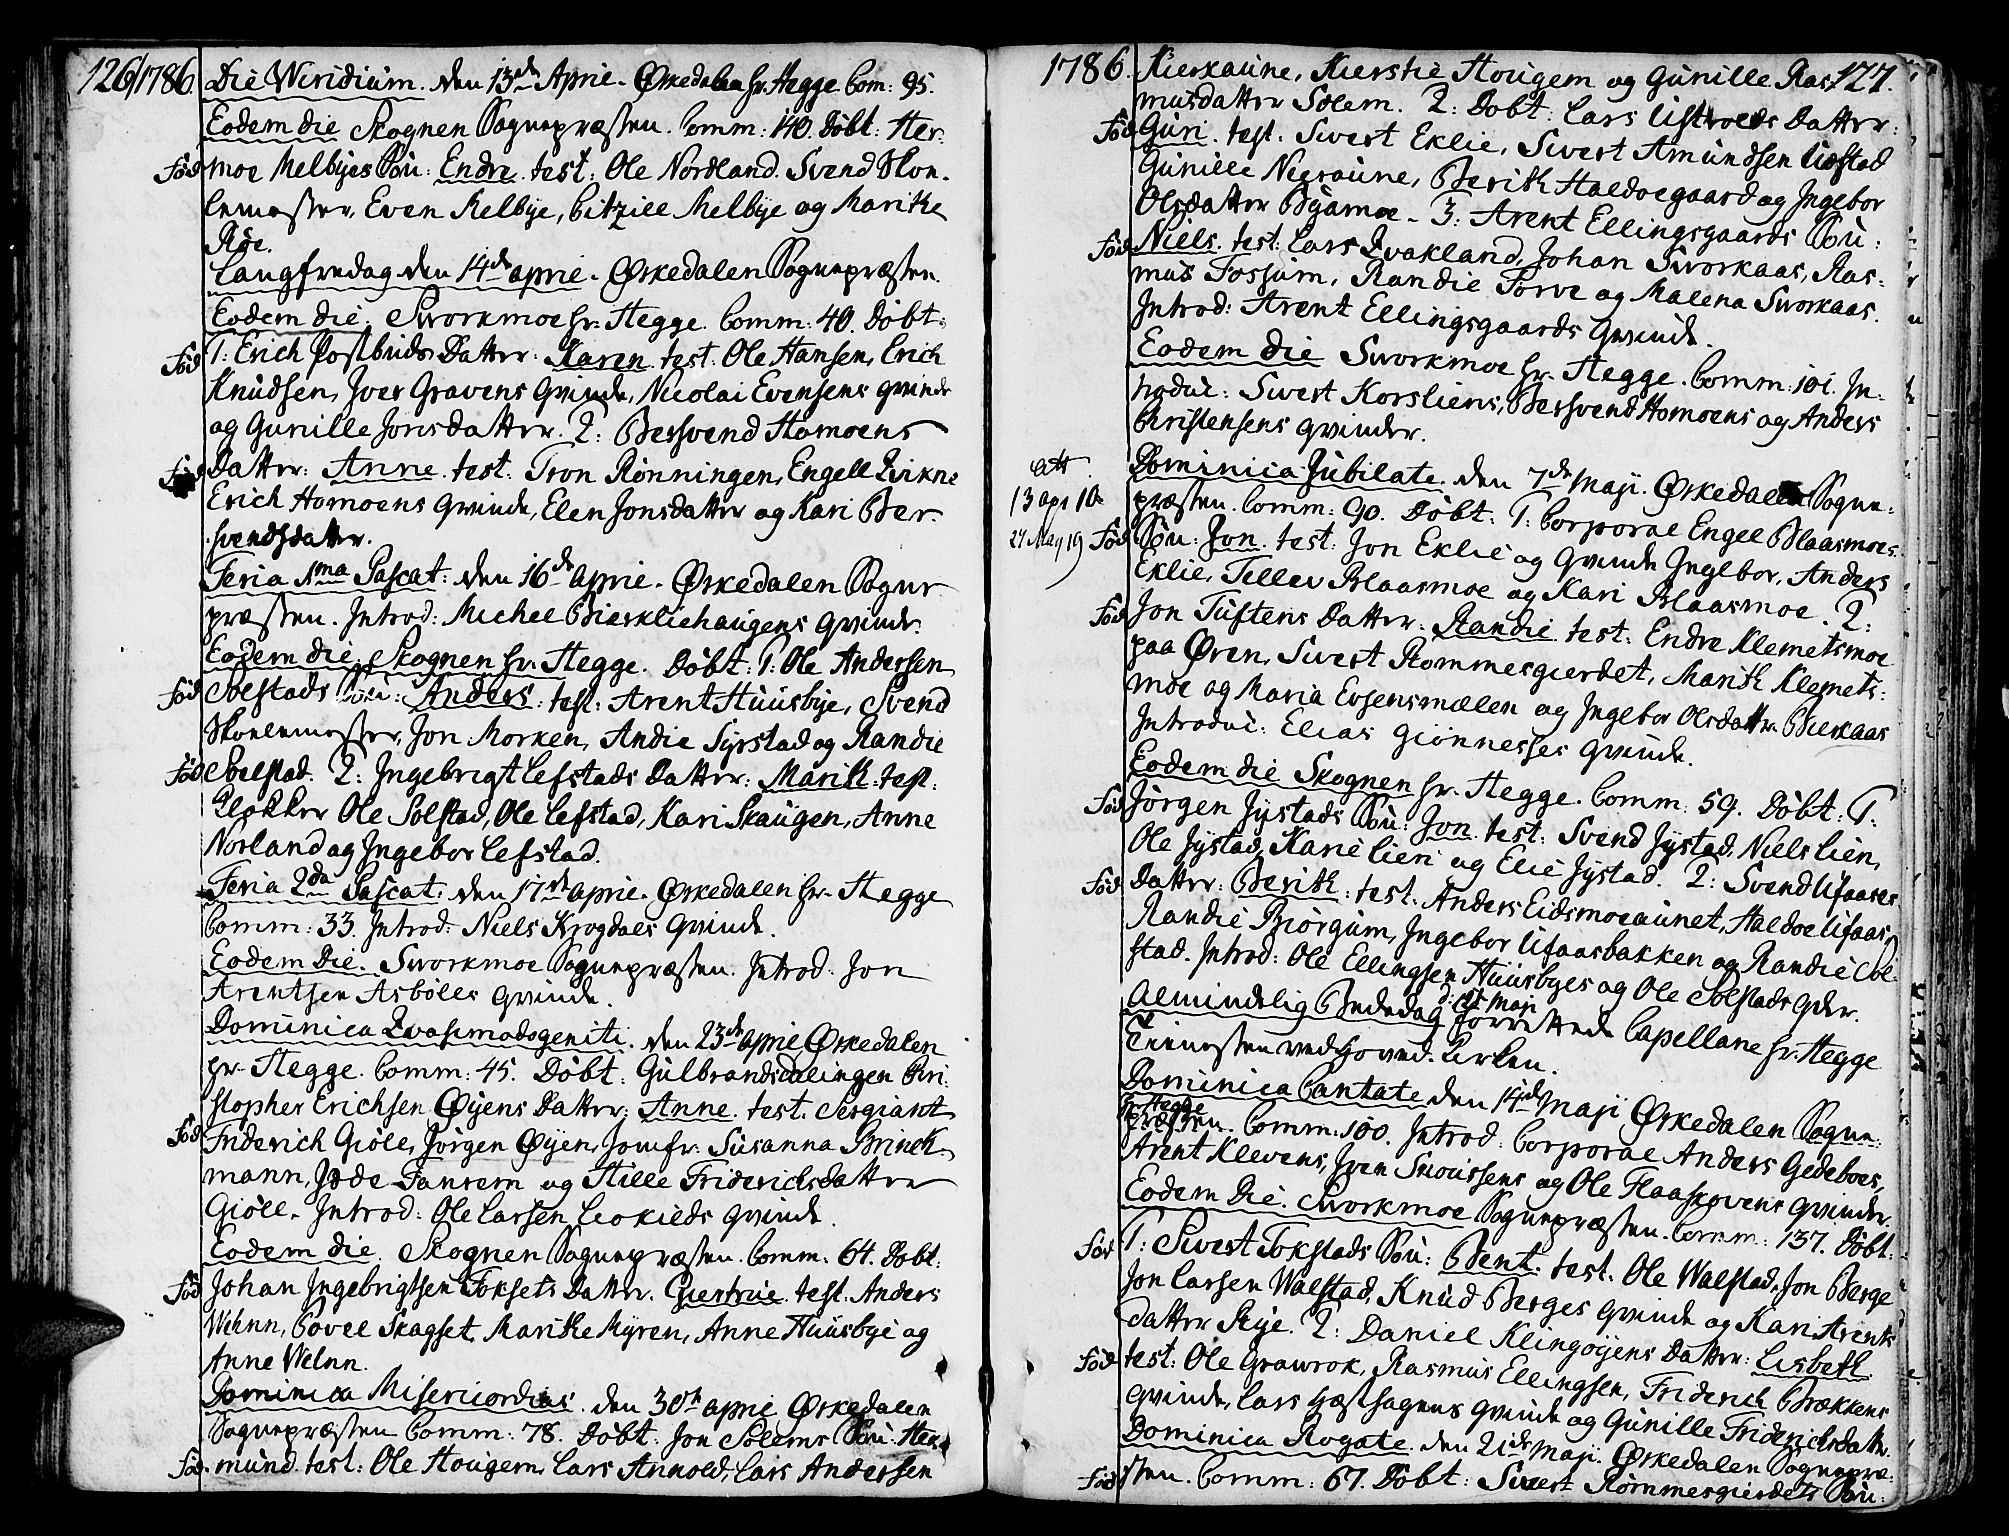 126/1786. Die Viridium. den 13de Aprie. Ørkedalen hr. Hegge Com: 95.
Eodem die Skognen Sognepræsten. Comm: 140. Døbt: Her-
Fød moe Melbyes Søn: Endre. test: Ole Nordland. Svend Skon-
lemester, Even Melbye, Citzille Melbye og Marithe
Røe.
Langfredag den 14de aprie. Ørkedalen Sognepræsten.
Eodem die. Sworkmoe hr: Hegge. Comm: 40. Døbt:
Fød 1: Erich Postbuds Datter: Karen test: Ole Hansen, Erich
Knudsen, Iver Gravens Qvinde, Nicolai Evensens qvinde
og Gunille Jonsdatter. 2: Bersvend Hamoens
Fød Datter: Anne. test: Tron Rønningen, Engell Qvikne
Erich Hamoens qvinde, Elen Jonsdatter og Kari Ber-
svendsdatter.
Feria 1ma Pascat: den 16de Aprie. Ørkedalen Sogne-
præsten. Introd: Michel Bierkliehaugens Qvinde.
Eodem die Skognen hr. Hegge. Døbt: 1: Ole Andersen
Fød Solstads Søn: Anders. test: Arent Huusbye, Svend
Skolemester, Jon Morken, Andie Syrstad og Randie
Fød Solstad. 2: Ingebrigt Lefstads Datter: Marith. test:
Klokker Ole Solstad, Ole Lefstad, Kari Skaugen, Anne
Norland og Ingebor Lefstad.
Feria 2da Pascat: den 17de aprie. Ørkedalen hr. Hegge
Comm: 33. Introd: Niels Krogdals Qvinde.
Eodem Die. Sworkmoe Sognepræsten. Introd: Jon
Arentsen Asbøles Qvinde.
Dominica Qvasimodogeniti. den 23de aprie, Ørkedalen
hr. Hegge. Comm: 45. Døbt: Gulbrandsdalingen Chri-
stopher Erichsen Øyens Datter: Anne. test: Sergiant
Fød Friderich Giøle, Jørgen Øyen, Jomfr: Susanna Brinch-
mann, Fanrem og Hille Friderichsdatter
Giøle. Introd: Ole Larsen Leokilds qvinde.
Eodem die. Skognen Sognepræsten. Comm: 64. Døbt:
Fød Johan Ingebrigtsen Foksets Datter. Giertrue. test. Anders
Wehnn, Povel Skagset, Marithe Myren, Anne Huusbye og
Anne Welnn.
Dominica Misericordias. den 30th aprie Ørkedalen
Sognepræsten Comm: 78. Døbt: Jon Solems Søn: Her-
Fød mund. test: Ole Hougem, Lars Arnold, Lars Andersen
1786. Kierkaune, Kierstie Hougem og Gunille Ras- 127.
musdatter Solem. 2: Døbt: Lars Datter:
Fød Guri. test: Sivert Eklie, Sivert Amundsen Uestad
Gunille Neeraune, Berith Haldoegaard og Ingebor
Olsdatter Byamoe. 3: Arent Ellingsgaards Søn:
Fød Niels. test: Lars Qvakland, Johan Sworkaas, Ras-
mus Fossum, Randie Torve og Malena Sworkaas.
Introd: Arent Ellingsgaards Qvinde.
Eodem die Sworkmoe hr. Hegge. Comm: 101. In-
troduc: Sivert Korsliens, Bersvend Hamoens og Anders
Christensens qvinder.
att. Dominica Jubilate. den 7de Maji. Ørkedalen Sogne-
13 apr 10 præsten. Comm: 90. Døbt: 1: Corporae Engel Blaasmoes
27 May 19 Fød Søn: Jon. test: Jon Eklie og Qvinde Ingebor, Anders
Eklie, Tellev Blaasmoe og Kari Blaasmoe. 2:
Fød Jon Tuftens Datter: Randie. test: Endre Klemetsmoe
paa Øren, Sivert Rommesgierdet, Marith Klemets-
moe og Maria Evsensmælen og Ingebor Olsdatter Bierkaas
Introduc: Elias Giønnesses Qvinde.
Eodem die Skognen hr. Hegge. Comm: 59. Døbt: 1:
Fød Jørgen Jystads Søn: Jon. test: Svend Jystad, Niels Lien,
Ole Jystad, Karie Lien og Elie Jystad. 2: Svend Ufaases
Fød Datter: Berith: test: Anders Eidsmoeaunet, Haldoe Ufaas,
Randie Biørgum, Ingebor Ufaasbakken og Randie Sol-
stad. Introd: Ole Ellingsen Huusbyes og Ole Solstads qder.
Almindelig Bededag d: 12t Maji forrettede Capellane hr. Hegge
Tienesten ved Hoved-Kirken.
Dominica Cantate den 14de Maji Ørkedalen Sogne-
hr. Hegge
præsten. Comm: 100. Introd: Corporae Anders Gedeboes,
Arent Klevens, Iven Snoussens og Ole Flaaskovens qvinder.
Eodem Die. Sworkmoe Sognepræsten. Comm: 137. Døbt:
Fød 1: Sivert Fokstads Søn: Bent. test. Ole Walstad, Jon Berge
Jon Larsen Walstad, Knud Berges Qvinde og Kari Arents
datter Rye. 2: Daniel Klingøyens Datter: Lisbeth
Fød test: Ole Grawrok, Rasmus Ellingsen, Friderich Brækkens
qvinde, Lars Hæsthagens qvinde og Gunille Friderichsdatter.
Dominica Rogate. den 21de Maji. Ørkedalen Sognepræ-
Fød sten. Comm: 67. Døbt: Sivert Rømmesgierdets Søn: